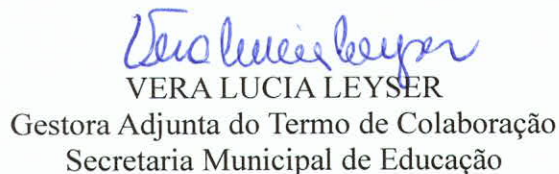 Vera Lucia Leyser
VERA LUCIA LEYSER
Gestora Adjunta do Termo de Colaboração
Secretaria Municipal de Educação